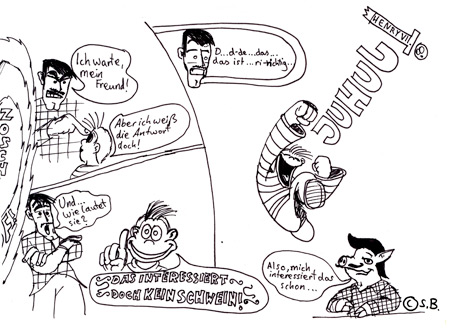 Ich warte,
mein
Freund!
Aber ich weiß
die Antwort
doch!
Und...
wie lautet
sie?
DAS INTERESSIERT
DOCH KEIN SCHWEIN!
D...d-de...das...
das ist...ri-richtig...
HENRY VI
JUHU!
Also, mich
interessiert das
schon...
© S.B.